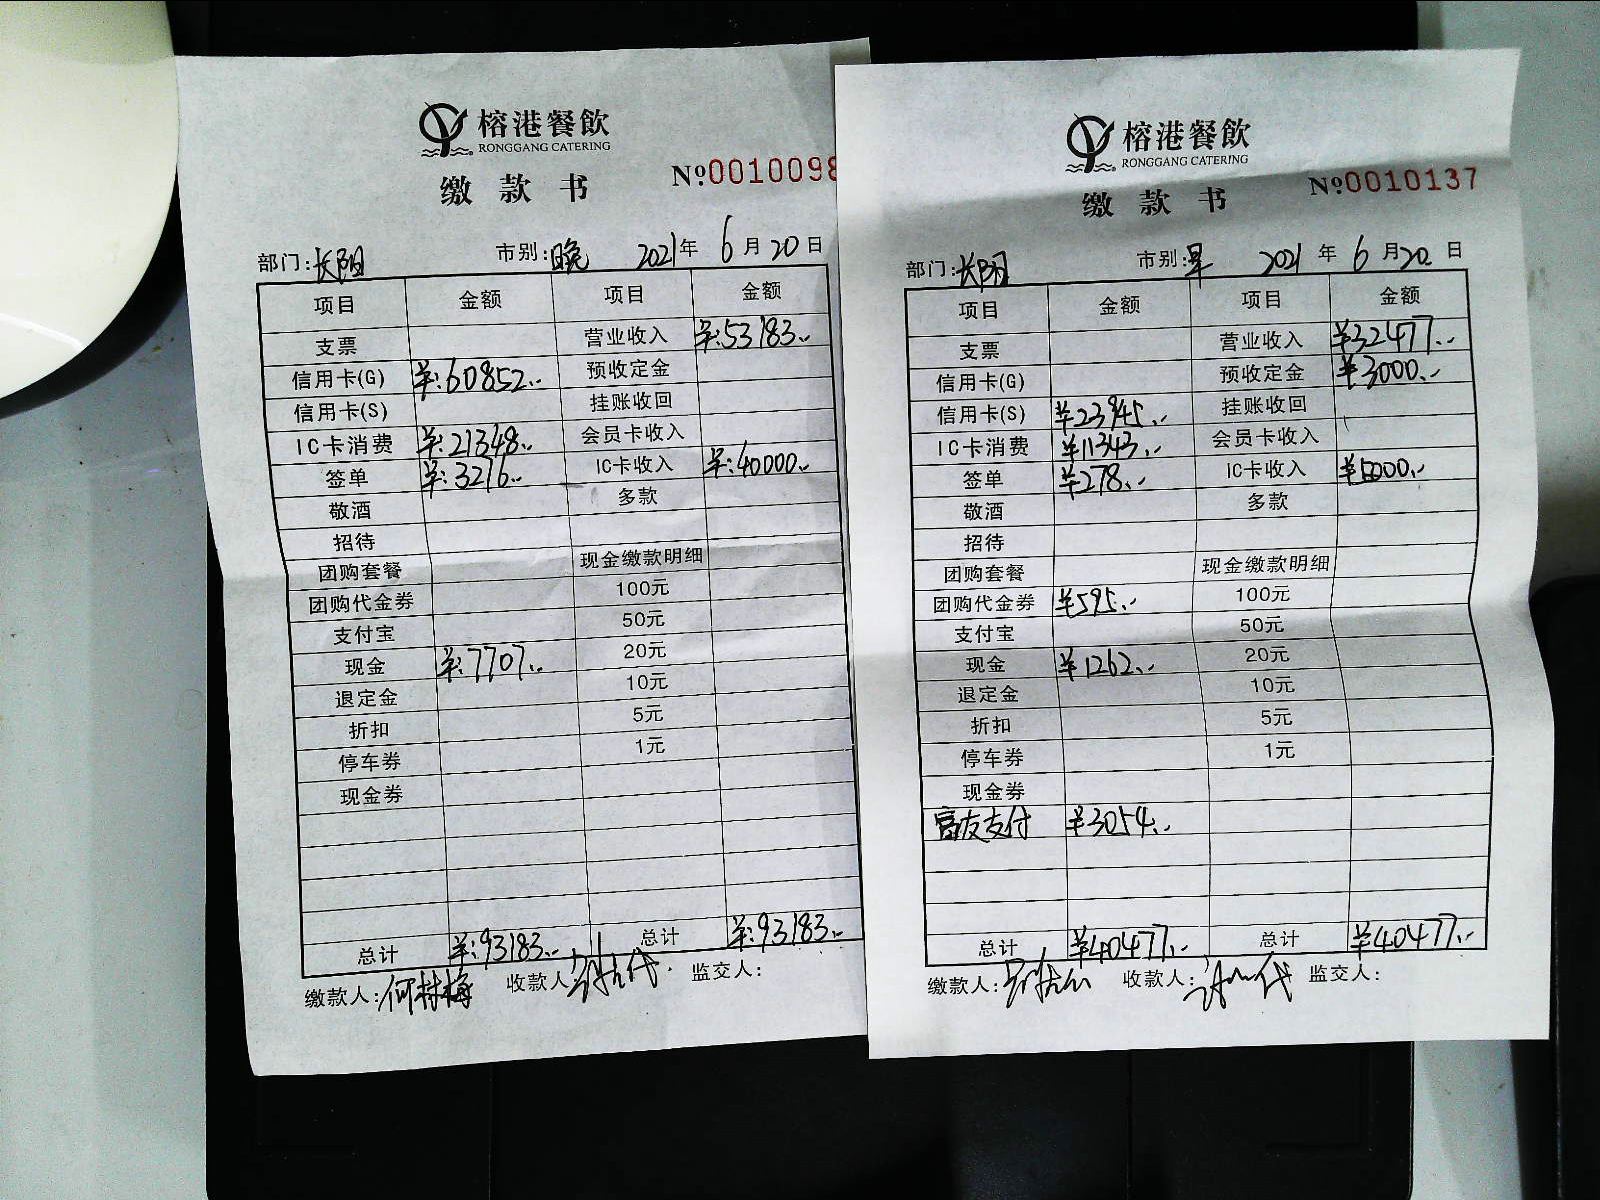 榕港餐飲
RONGGANG CATERING
缴款书
№0010098
部门:长阳 市别:晚 2021年 6月20日
项目 金额 项目 金额
支票 营业收入 ¥:53183..
信用卡(G) ¥:60852.. 预收定金
信用卡(S) 挂账收回
IC卡消费 ¥:21348.. 会员卡收入
签单 ¥:3276.. IC卡收入 ¥:40000..
敬酒 多款
招待
团购套餐 现金缴款明细
团购代金券 100元
支付宝 50元
现金 ¥:7707.. 20元
退定金 10元
折扣 5元
停车券 1元
现金券
总计 ¥:93183.. 总计 ¥:93183..
缴款人:何村梅 收款人: 监交人:
榕港餐飲
RONGGANG CATERING
缴款书
№0010137
部门:长阳 市别:早 2021年 6月20日
项目 金额 项目 金额
支票 营业收入 ¥32477..
信用卡(G) 预收定金 ¥3000..
信用卡(S) ¥23945.. 挂账收回
IC卡消费 ¥11343.. 会员卡收入
签单 ¥278.. IC卡收入 ¥5000..
敬酒 多款
招待
团购套餐 现金缴款明细
团购代金券 ¥595.. 100元
支付宝 50元
现金 ¥1262.. 20元
退定金 10元
折扣 5元
停车券 1元
现金券
富友支付 ¥3054..
总计 ¥40477.. 总计 ¥40477..
缴款人: 收款人: 监交人: